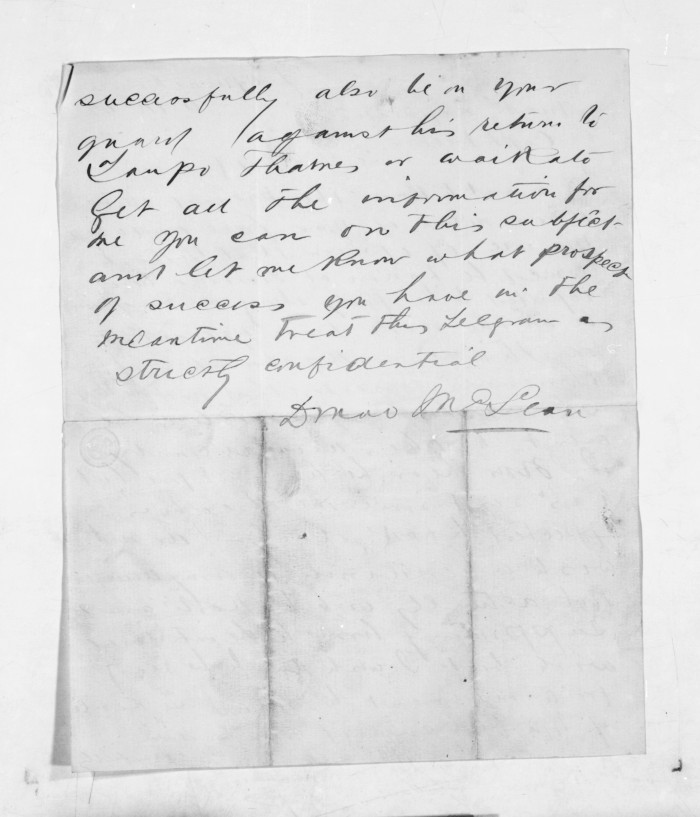 successfully also be on your
guard against his return to
Taupo Thames or Waikato
Get all the information for
me you can on this subject
and let me know what prospect
of success you have in the
meantime treat this Telegram as
strictly confidential
Donald McLean